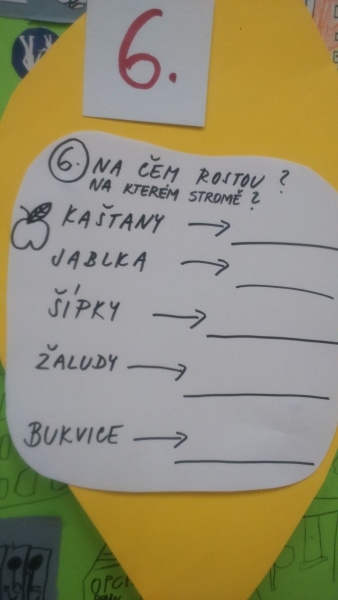 6.
6. NA ČEM ROSTOU ?
NA KTERÉM STROMĚ ?
KAŠTANY →
JABLKA →
ŠÍPKY →
ŽALUDY →
BUKVICE →
OPČ